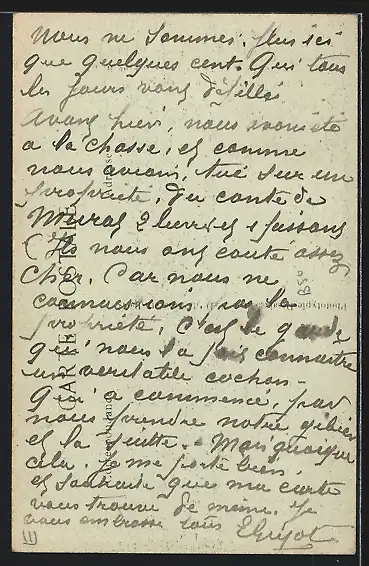 nous ne sommes plus ici
que quelques cent. Qui tous
les jours vont défillé
Avans hier, nous avons été
a la chasse, et comme
nous avions, tué sur un
propriété, du conte de
Murat 2 lievres et 1 faisans
(Ils nous ont couté assez
cher. Car nous ne
connaissions pas la
propriété, c'est le garde
qui nous la fait connaitre
un veritable cochon -
Qui a commencé, par
nous prendre notre gibier
et la suitte. Mais quoique
cela. Je me porte bien,
et souhaite que ma carte
vous trouve de même. Je
vous embrasse tous
(1)
CARTE POSTALE
Correspondance
Adresse